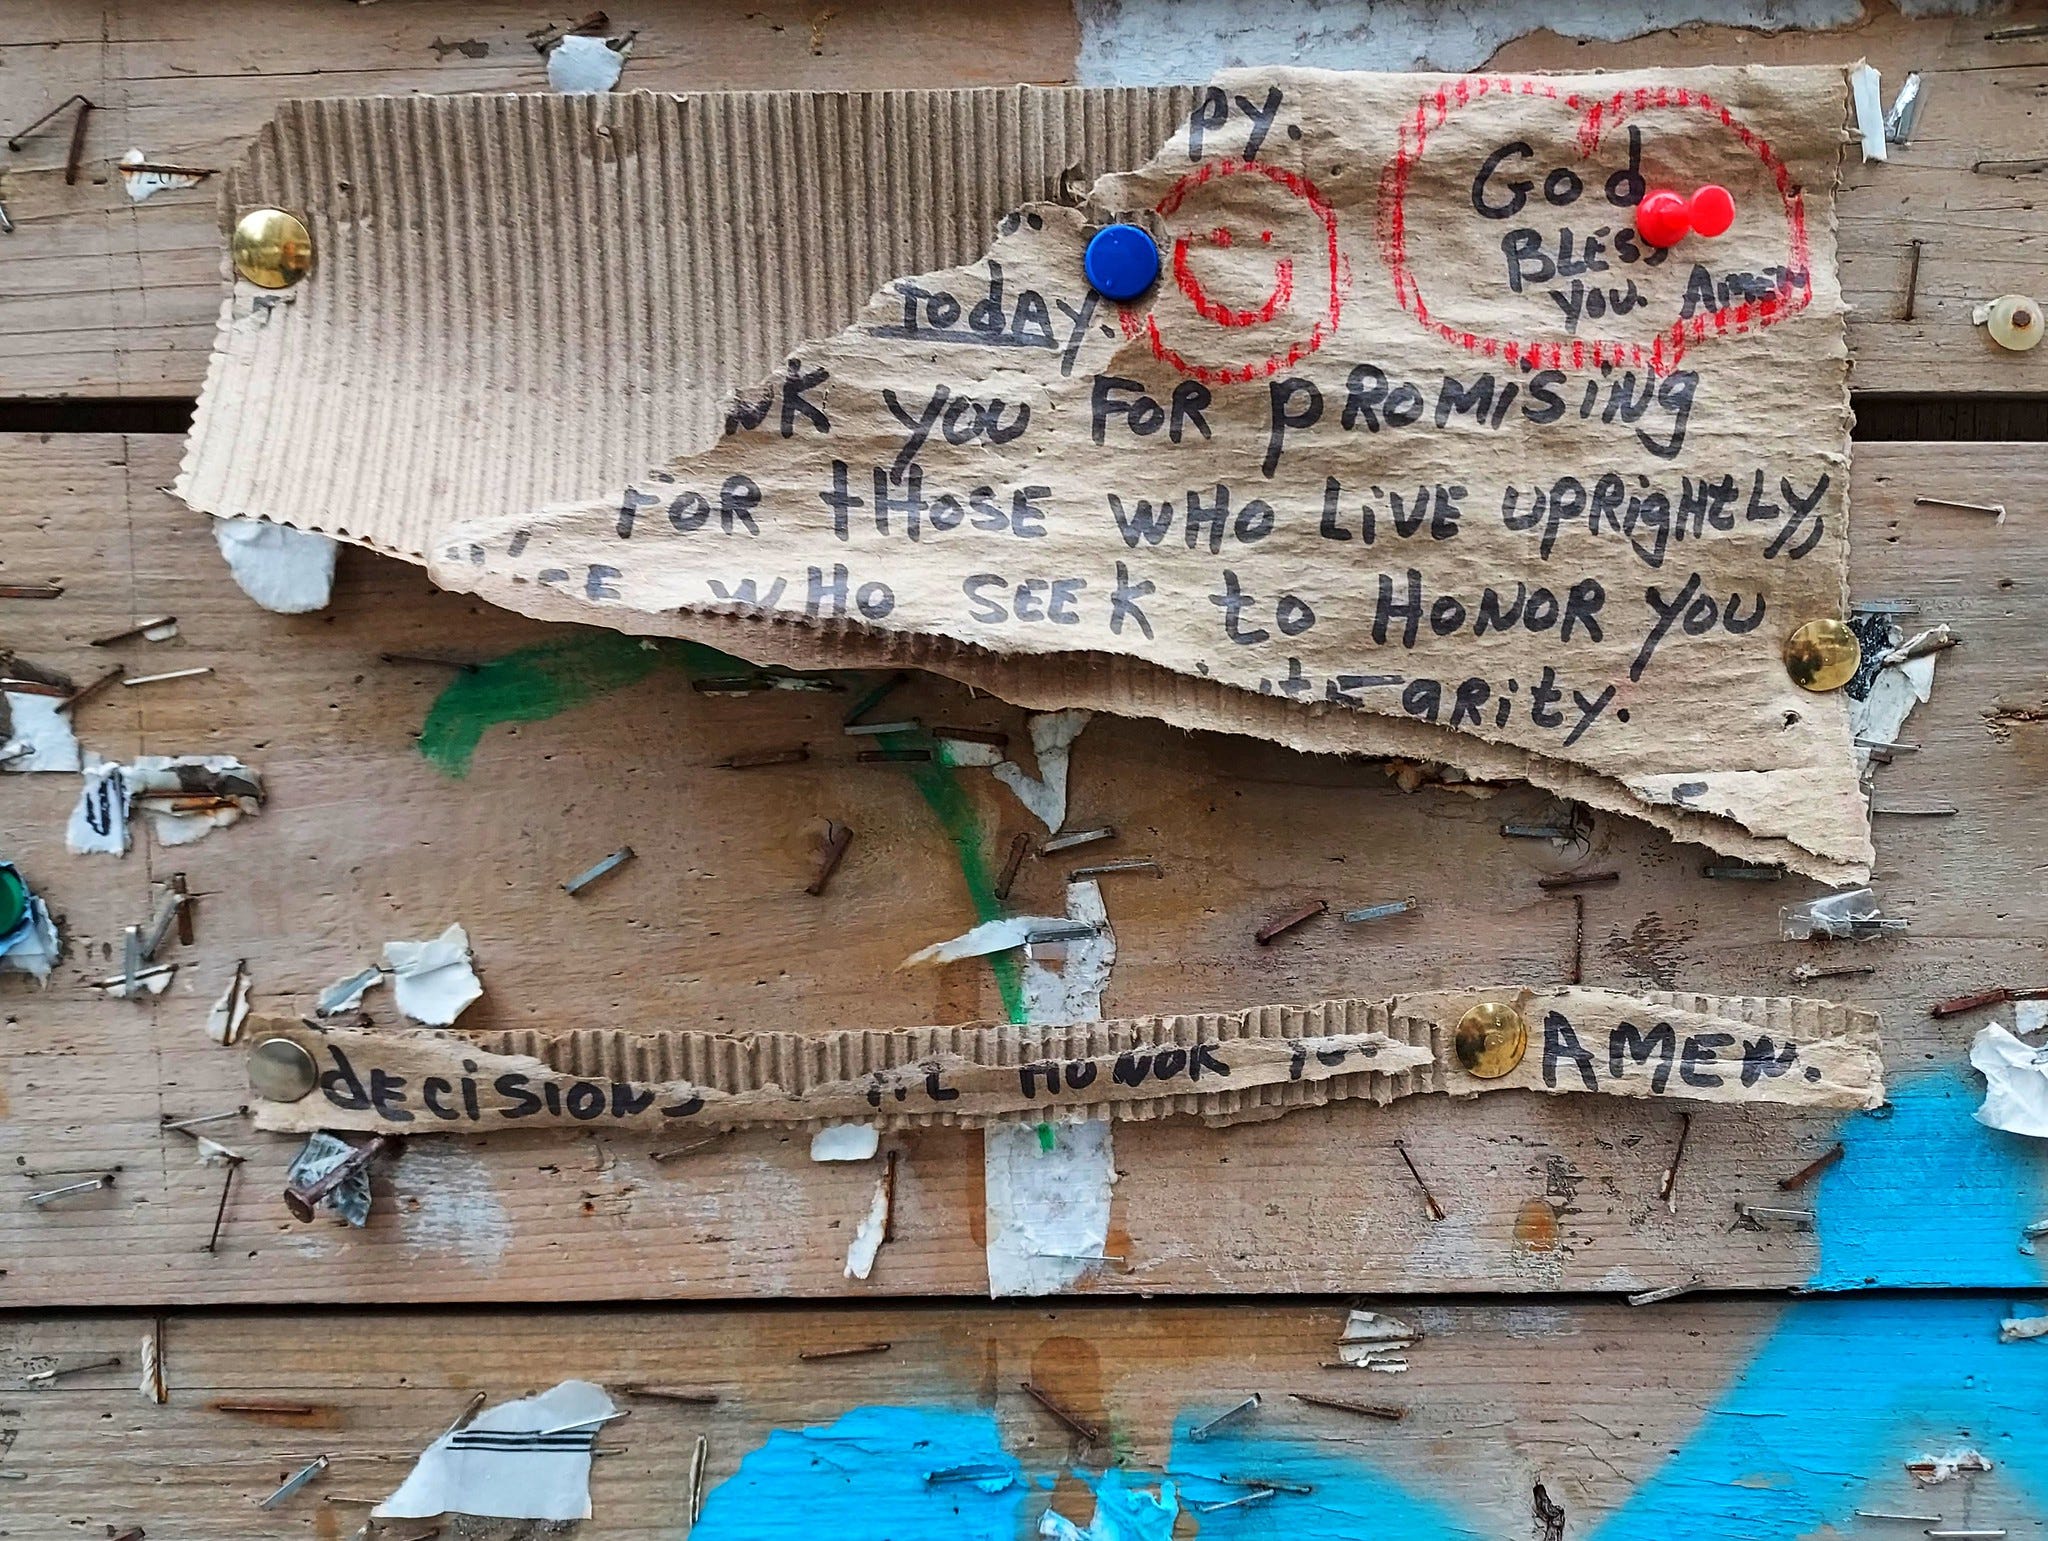 PY.
God
BLESS
YOU. AMEN
TODAY.
NK YOU FOR PROMISING
FOR THOSE WHO LIVE UPRIGHTLY,
SE WHO SEEK to HONOR YOU
integrity.
DECISIONS HONOR YOU AMEN.